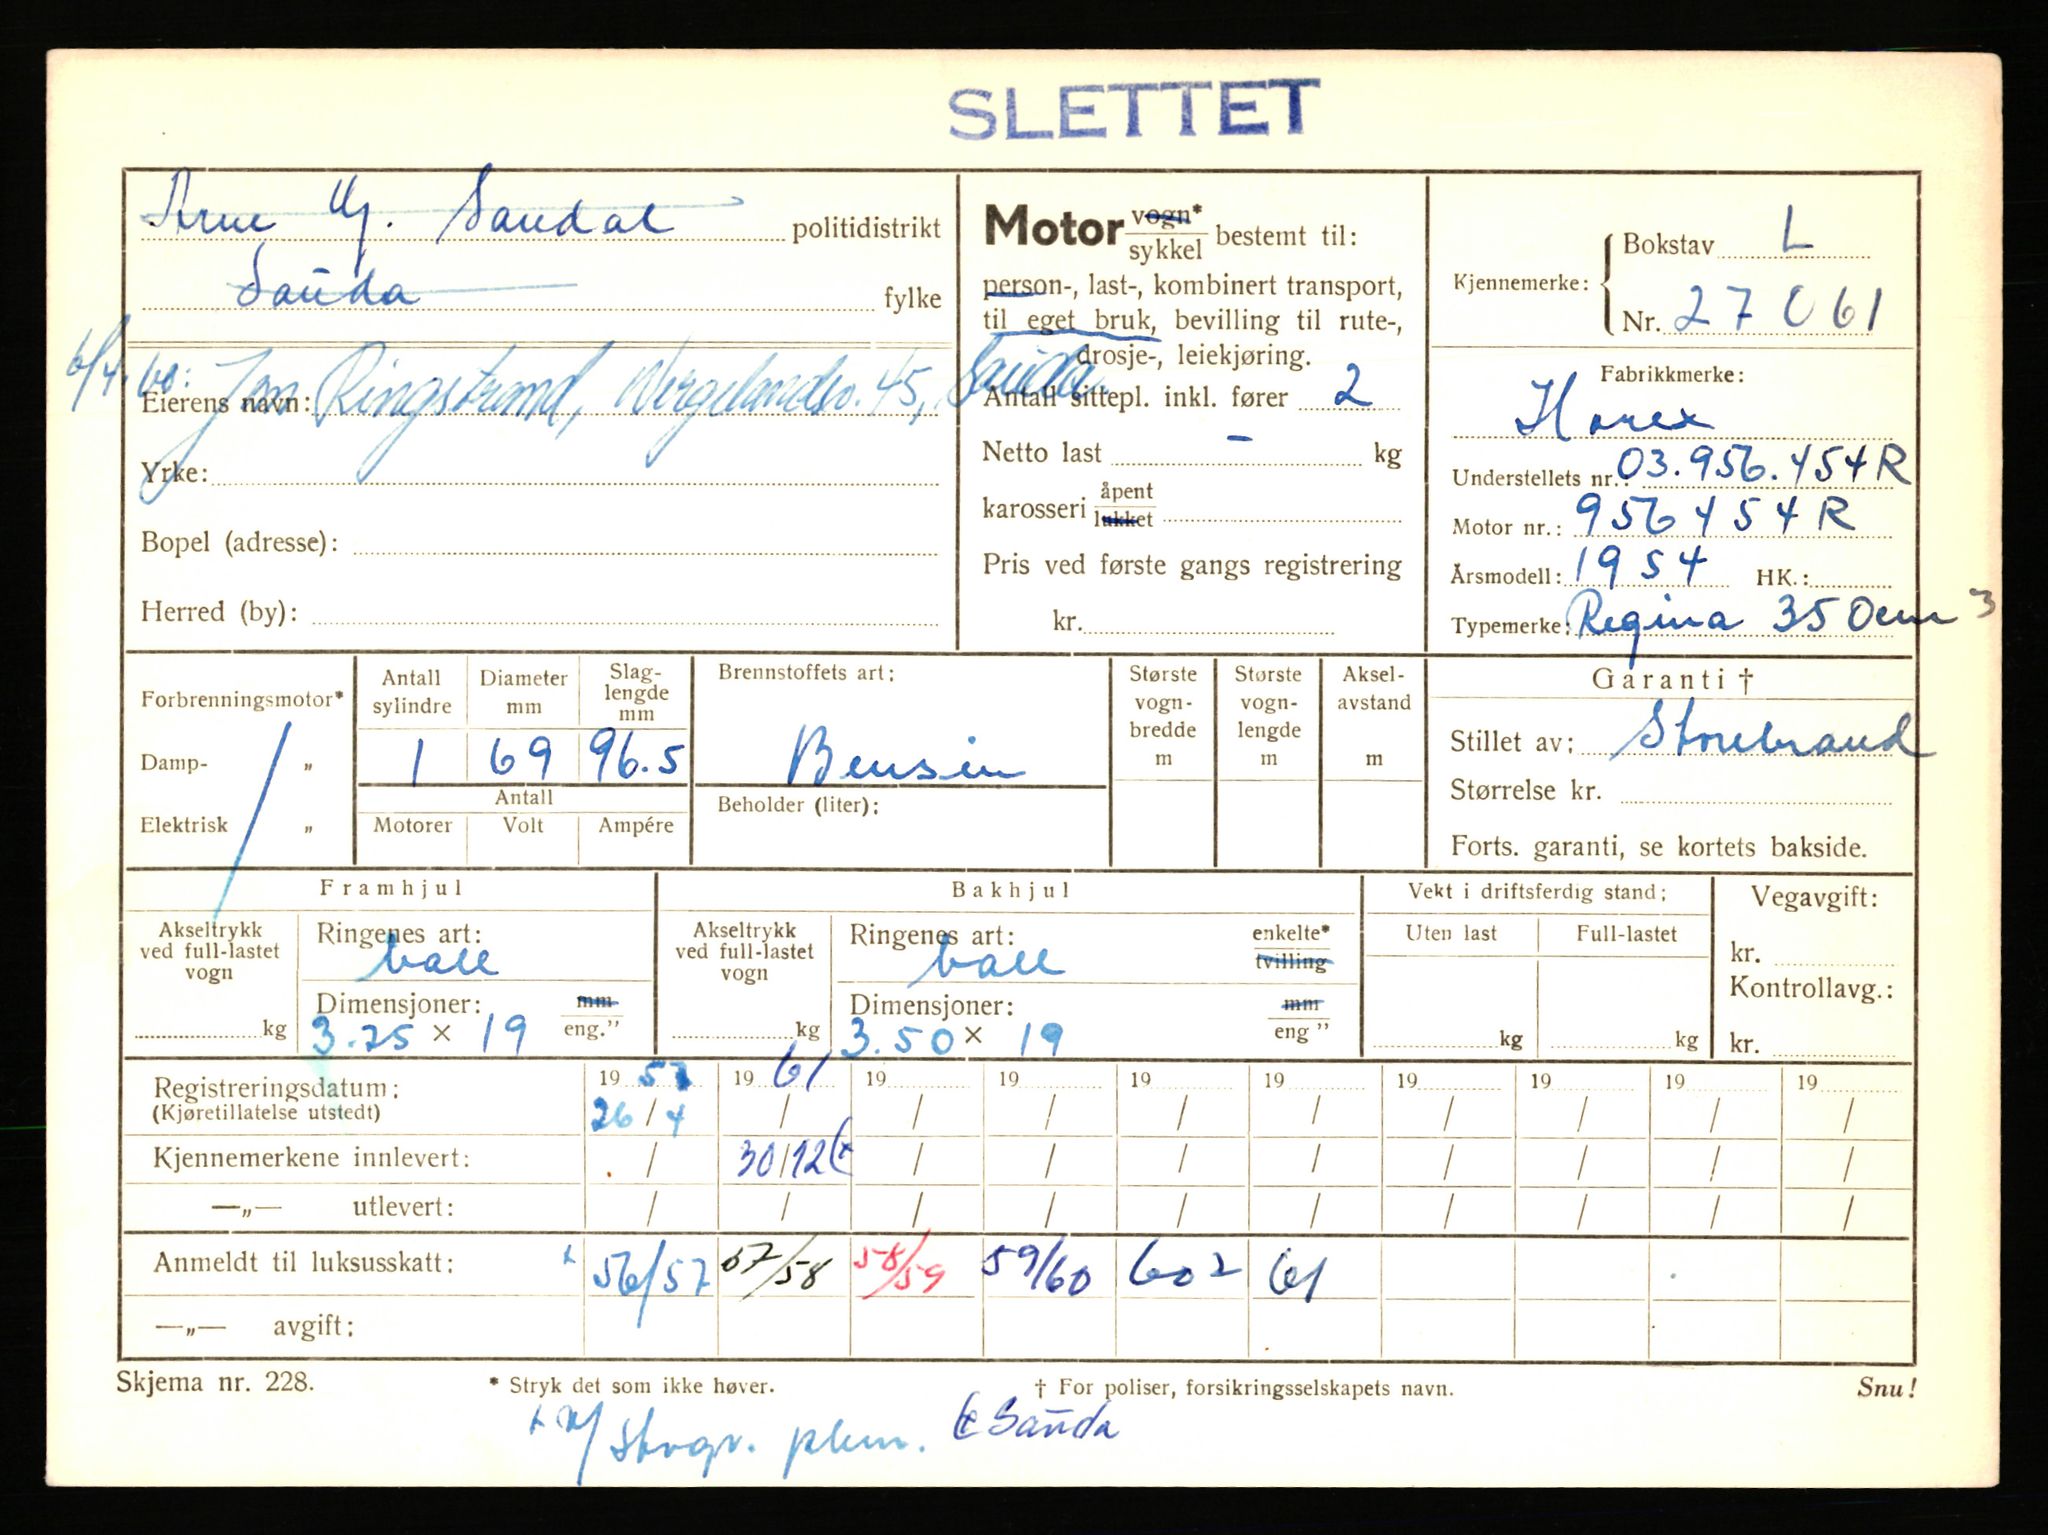 SLETTET
Arne Sandal politidistrikt
Sauda fylke
6/4.60: Jan Ringstrand, Wergelandsv. 45, Sauda
Eierens navn:
Yrke:
Bopel (adresse):
Herred (by):
Motor vogn* / sykkel bestemt til:
person-, last-, kombinert transport,
til eget bruk, bevilling til rute-,
drosje-, leiekjøring.
Antall sittepl. inkl. fører 2
Netto last – kg
karosseri åpent / lukket
Pris ved første gangs registrering
kr.
Kjennemerke: Bokstav L
Nr. 27061
Fabrikkmerke:
Horex
Understellets nr.: 03.956.454R
Motor nr.: 956454R
Årsmodell: 1954 HK.:
Typemerke: Regina 350cm³
Forbrenningsmotor*
Damp- „
Elektrisk „
Antall sylindre Diameter mm Slaglengde mm
1 69 96.5
Antall
Motorer Volt Ampére
Brennstoffets art:
Bensin
Beholder (liter):
Største vogn-bredde m
Største vogn-lengde m
Aksel-avstand m
Garanti †
Stillet av: Storebrand
Størrelse kr.
Forts. garanti, se kortets bakside.
Framhjul
Akseltrykk ved full-lastet vogn kg
Ringenes art: ball
Dimensjoner: mm / eng.”
3.25 × 19
Bakhjul
Akseltrykk ved full-lastet vogn kg
Ringenes art: ball enkelte* / tvilling
Dimensjoner: mm / eng ”
3.50 × 19
Vekt i driftsferdig stand:
Uten last Full-lastet
kg kg
Vegavgift:
kr.
Kontrollavg.:
kr.
Registreringsdatum: 1957 1961 19 19 19 19 19 19 19 19
(Kjøretillatelse utstedt) 26/4 / / / / / / / / /
Kjennemerkene innlevert: / 30/12 / / / / / / / /
—„— utlevert: / / / / / / / / / /
Anmeldt til luksusskatt: x 56/57 57/58 58/59 59/60 602 61
—„— avgift:
Skjema nr. 228. * Stryk det som ikke høver. † For poliser, forsikringsselskapets navn. Snu!
Sauda